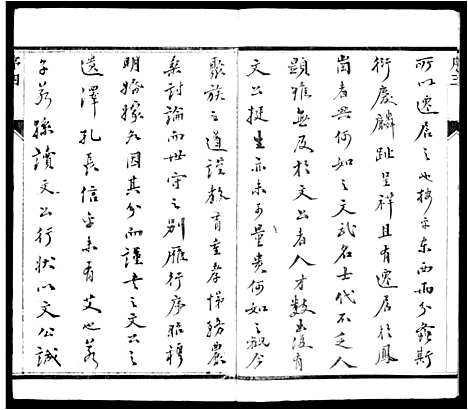 序三
所以遷居之也按平东西兩分螽斯
衍慶麟趾呈祥且有遷居於鳳
崗者與何如之文武名士代不乏人
顯雅無及於文公者人才數出復有
文公挺生亦未可量貴何如之祝今
聚族之道詳教育重孝悌務農
桑討論而世守之別雁行序昭穆
明婚嫁知因其分而謹者之文公之
遺澤孔長信乎未有艾也若
子若孫讀文公行狀以文公誠
序四